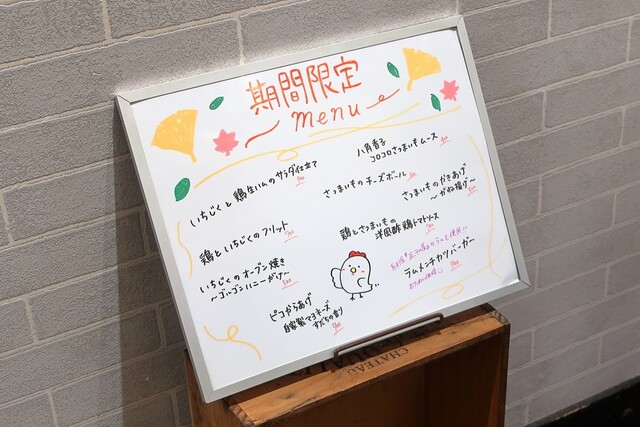 期間限定
menu
いちじくと鶏生ハムのサラダ仕立て
鶏といちじくのフリット
いちじくのオーブン焼き
〜ゴルゴンハニーがけ〜
ピコからあげ
自家製マヨネーズ
すだちの香り
八角香る
コロコロさつまいもムース
さつまいものチーズボール
さつまいものかきあげ
〜がね揚げ〜
鶏とさつまいもの
洋風酢鶏トマトソース
ラムメンチカツバーガー
CHATEAU